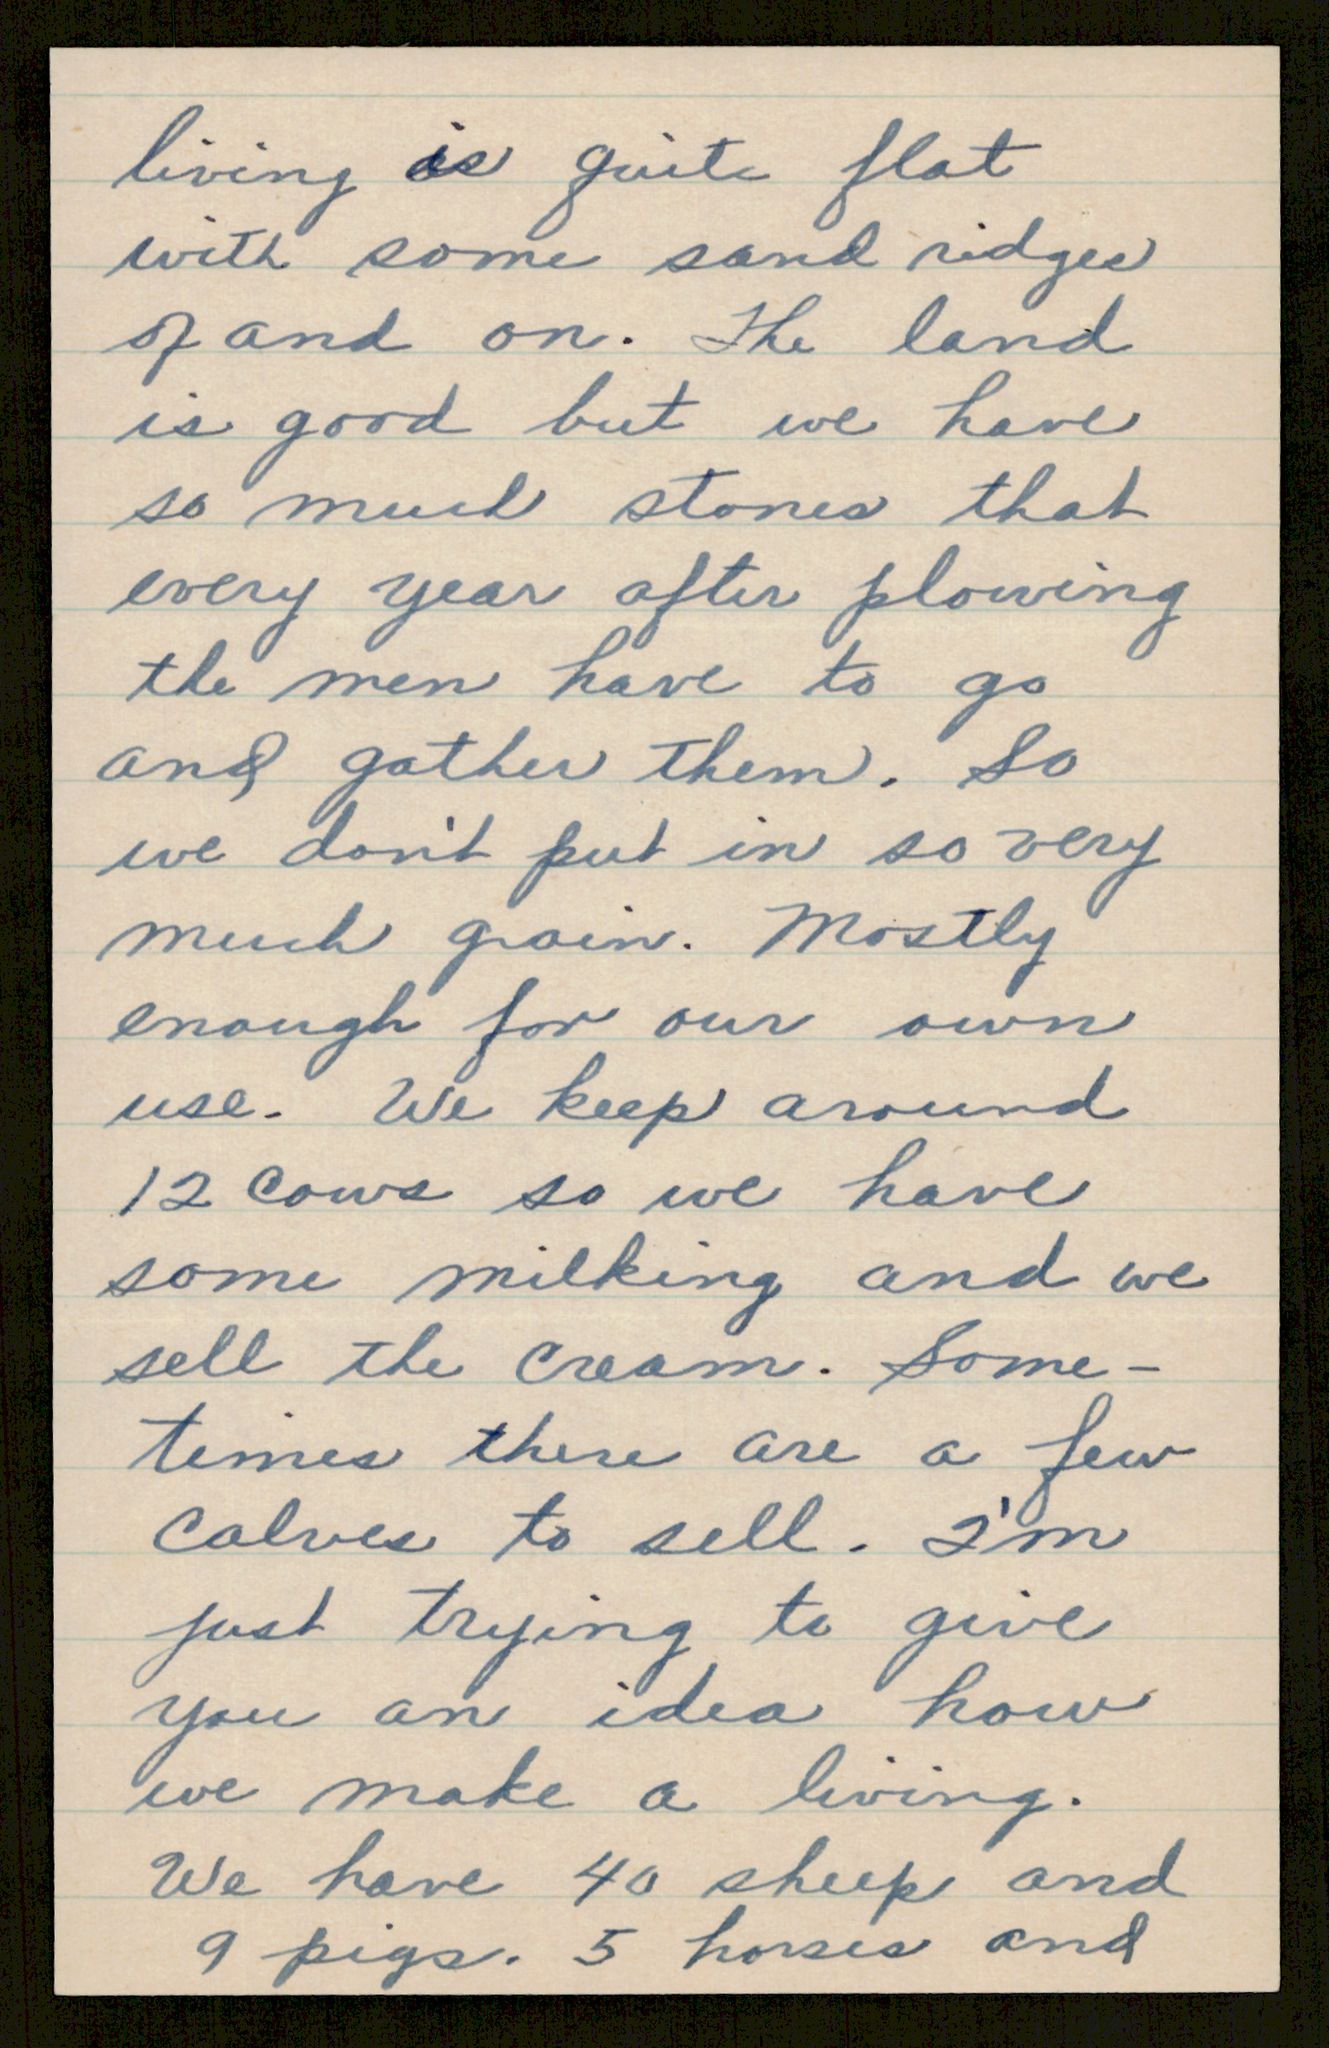 living is quite flat
with some sand ridges
of and on. The land
is good but we have
so much stones that
every year after plowing
the men have to go
and gather them. So
we don't put in so very
much grain. Mostly
enough for our own
use. We keep around
12 cows so we have
some milking and we
sell the cream. Some-
times there are a few
calves to sell. I'm
just trying to give
you an idea how
we make a living.
We have 40 sheep and
9 pigs. 5 horses and